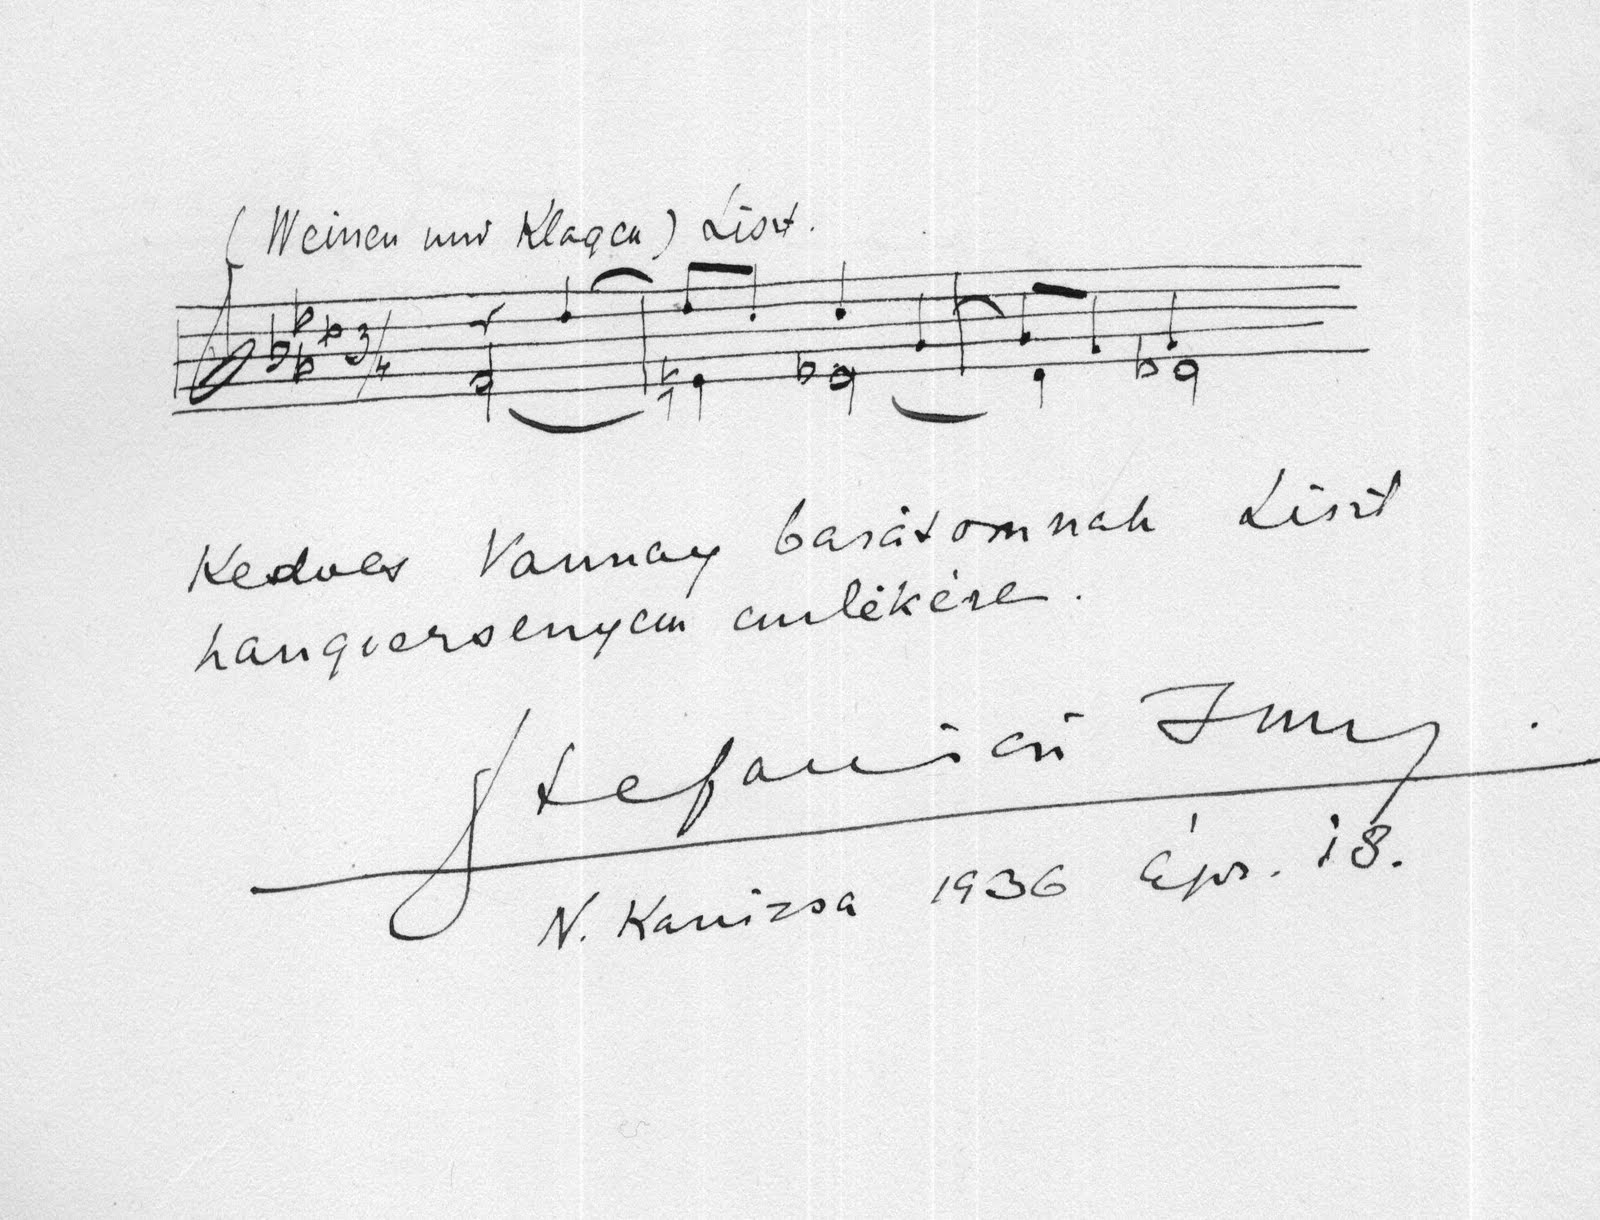 (Weinen und Klagen) Liszt.
3/4
Kedves Vannay barátomnak Liszt
hangversenyem emlékére.
Stefániai Imre.
N. Kanizsa 1936 ápr. 18.